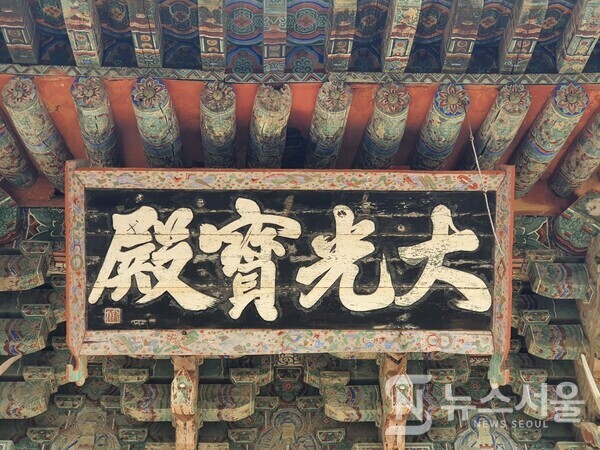 大光寶殿
뉴스서울
NEWS SEOUL